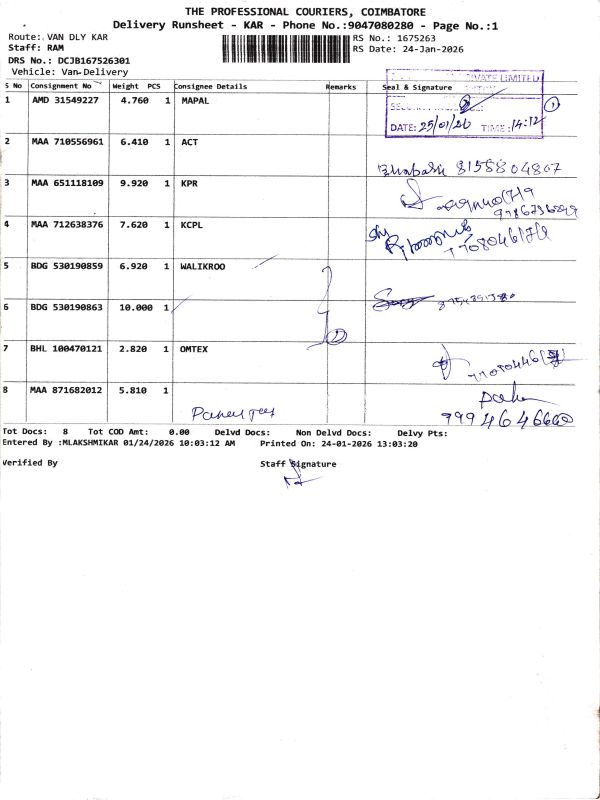 THE PROFESSIONAL COURIERS, COIMBATORE
Delivery Runsheet - KAR - Phone No.:9047080280 - Page No.:1
Route: VAN DLY KAR
RS No.: 1675263
Staff: RAM
RS Date: 24-Jan-2026
DRS No.: DCJB167526301
Vehicle: Van-Delivery
S No Consignment No Weight PCS Consignee Details Remarks Seal & Signature
PRIVATE LIMITED
1 AMD 31549227 4.760 1 MAPAL
DATE: 25/01/26 TIME: 14:12
2 MAA 710556961 6.410 1 ACT
8158804867
3 MAA 651118109 9.920 1 KPR
4 MAA 712638376 7.620 1 KCPL
5 BDG 530190859 6.920 1 WALIKROO
6 BDG 530190863 10.000 1
2
7 BHL 100470121 2.820 1 OMTEX
8 MAA 871682012 5.810 1
Tot Docs: 8 Tot COD Amt: 0.00 Delvd Docs: Non Delvd Docs: Delvy Pts:
Entered By :MLAKSHMIKAR 01/24/2026 10:03:12 AM Printed On: 24-01-2026 13:03:20
Verified By Staff Signature